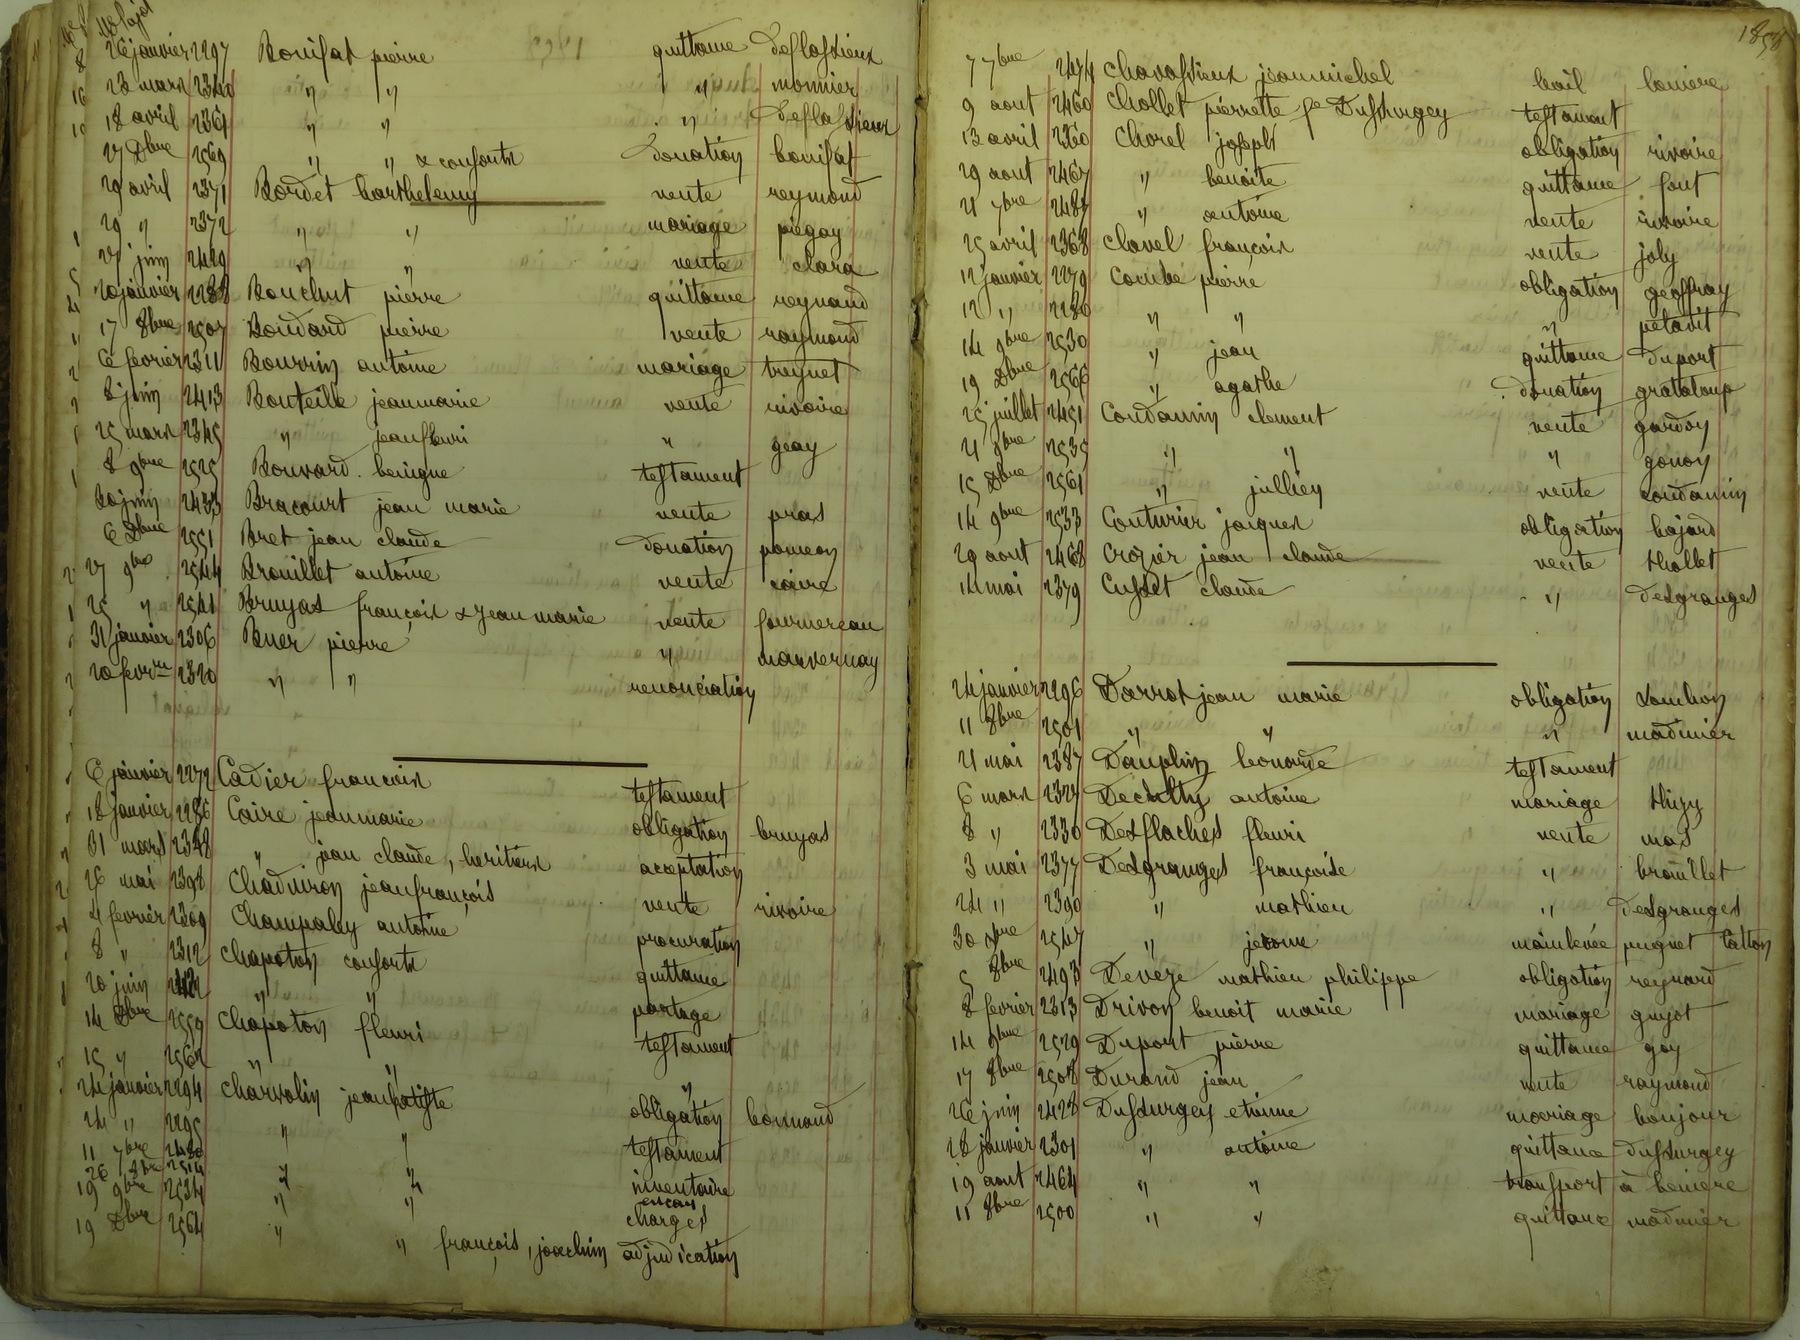 26 janvier 2297 Bonifat pierre quittance Deflassieux
23 mars 2340 " " " monnier
18 avril 2361 " " " Deflassieux
27 Dbre 2569 " " & consorts Donation bonifat
29 avril 2371 Bordet barthelemy vente reymond
29 " 2372 " " mariage piegay
27 juin 2429 " " vente clara
20 janvier 2288 Bouchut pierre quittance reynaud
17 8bre 2507 Boudard pierre vente raymond
6 fevrier 2311 Bourrin antoine mariage treynet
8 juin 2413 Bouteille jeanmarie vente rivoire
25 mars 2345 " jeanfleuri " geay
8 9bre 2525 Bouvard benigne testament
30 juin 2433 Bracourt jean marie vente pras
6 Dbre 2551 Bret jean claude Donation pomeon
27 9bre 2544 Brouillet antoine vente caire
25 " 2541 Bruyas françois & jean marie vente fournereau
31 janvier 2306 Buer pierre " manvernay
20 fevrier 2320 " " renonciation
6 janvier 2272 Cadier francois testament
18 janvier 2286 Caire jeanmarie obligation bruyas
31 mars 2348 " jean claude, heritiers acceptation
26 mai 2398 Chaduiron jeanfrançois vente rivoire
4 fevrier 2309 Champaley antoine procuration
8 " 2312 Chapoton consorts quittance
20 juin " " partage
14 Dbre 2559 Chapoton fleuri testament
15 " 2562 " " "
24 janvier 2294 Charvolin jeanbatiste obligation bonnand
24 " 2295 " " testament
11 7bre 2480 " " inventaire
26 2514 encan
19 9bre 2534 " " charges
19 Dbre 2564 " " françois, joachim adjudication
1858
7 7bre 2474 Chavassieux jeanmichel bail baniere
9 aout 2460 Chollet pierrette fe Dussurgey testament
13 avril 2360 Chorel joseph obligation rivoire
29 aout 2467 " benoite quittance font
21 7bre 2487 " antoine vente rivoire
25 avril 2368 Clavel françois vente joly
12 janvier 2279 Combe pierre obligation geoffray
12 " 2280 " " " petavit
14 9bre 2530 " jean quittance Duport
19 Dbre 2566 " agathe Donation grataloup
25 juillet 2451 Coudamin clement vente gardon
21 9bre 2535 " " " gonon
15 Dbre 2561 " jullien vente coudamin
14 9bre 2533 Couturier jacques obligation bajard
29 aout 2468 Crozier jean claude vente thollet
14 mai 2379 Cusset claude " Desgranges
24 janvier 2296 Darrot jean marie obligation
11 8bre 2501 " " " madinier
21 mai 2387 Dauphin leonarde testament
6 mars 2327 antoine mariage thizy
8 " 2330 Desflaches fleuri vente mas
3 mai 2377 Desgranges françoise " brouillet
24 " 2390 " mathieu " Desgranges
30 9bre 2547 " jerome mainlevée pugnet
5 8bre 2493 Deveze mathieu philippe obligation reynard
8 fevrier 2313 Drivon benoit marie mariage guyot
14 9bre 2529 Duport pierre quittance goy
17 8bre 2508 Durand jean vente raymond
26 juin 2428 Dussurgey etienne mariage bonjour
28 janvier 2301 " antoine quittance Dussurgey
19 aout 2464 " " transport à beniere
11 8bre 2500 " " quittance madinier